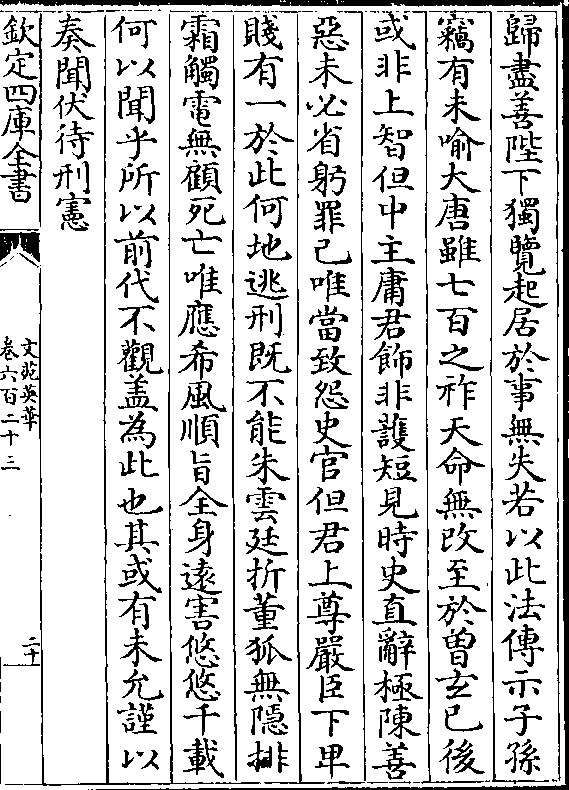 歸盡善陛下獨覽起居於事無失若以此法傳示子孫
竊有未喻大唐雖七百之祚天命無改至於曽玄已後
或非上智但中主庸君飾非護短見時史直辭極陳善
惡未必省躬罪己唯當致怨史官但君上尊嚴臣下卑
賤有一於此何地逃刑既不能朱雲廷折董狐無隠排
霜觸電無顧死亡唯應希風順旨全身逺害悠悠千載
何以聞乎所以前代不觀盖為此也其或有未允謹以
奏聞伏待刑憲
欽定四庫全書
文苑英華
卷六百二十三
二十